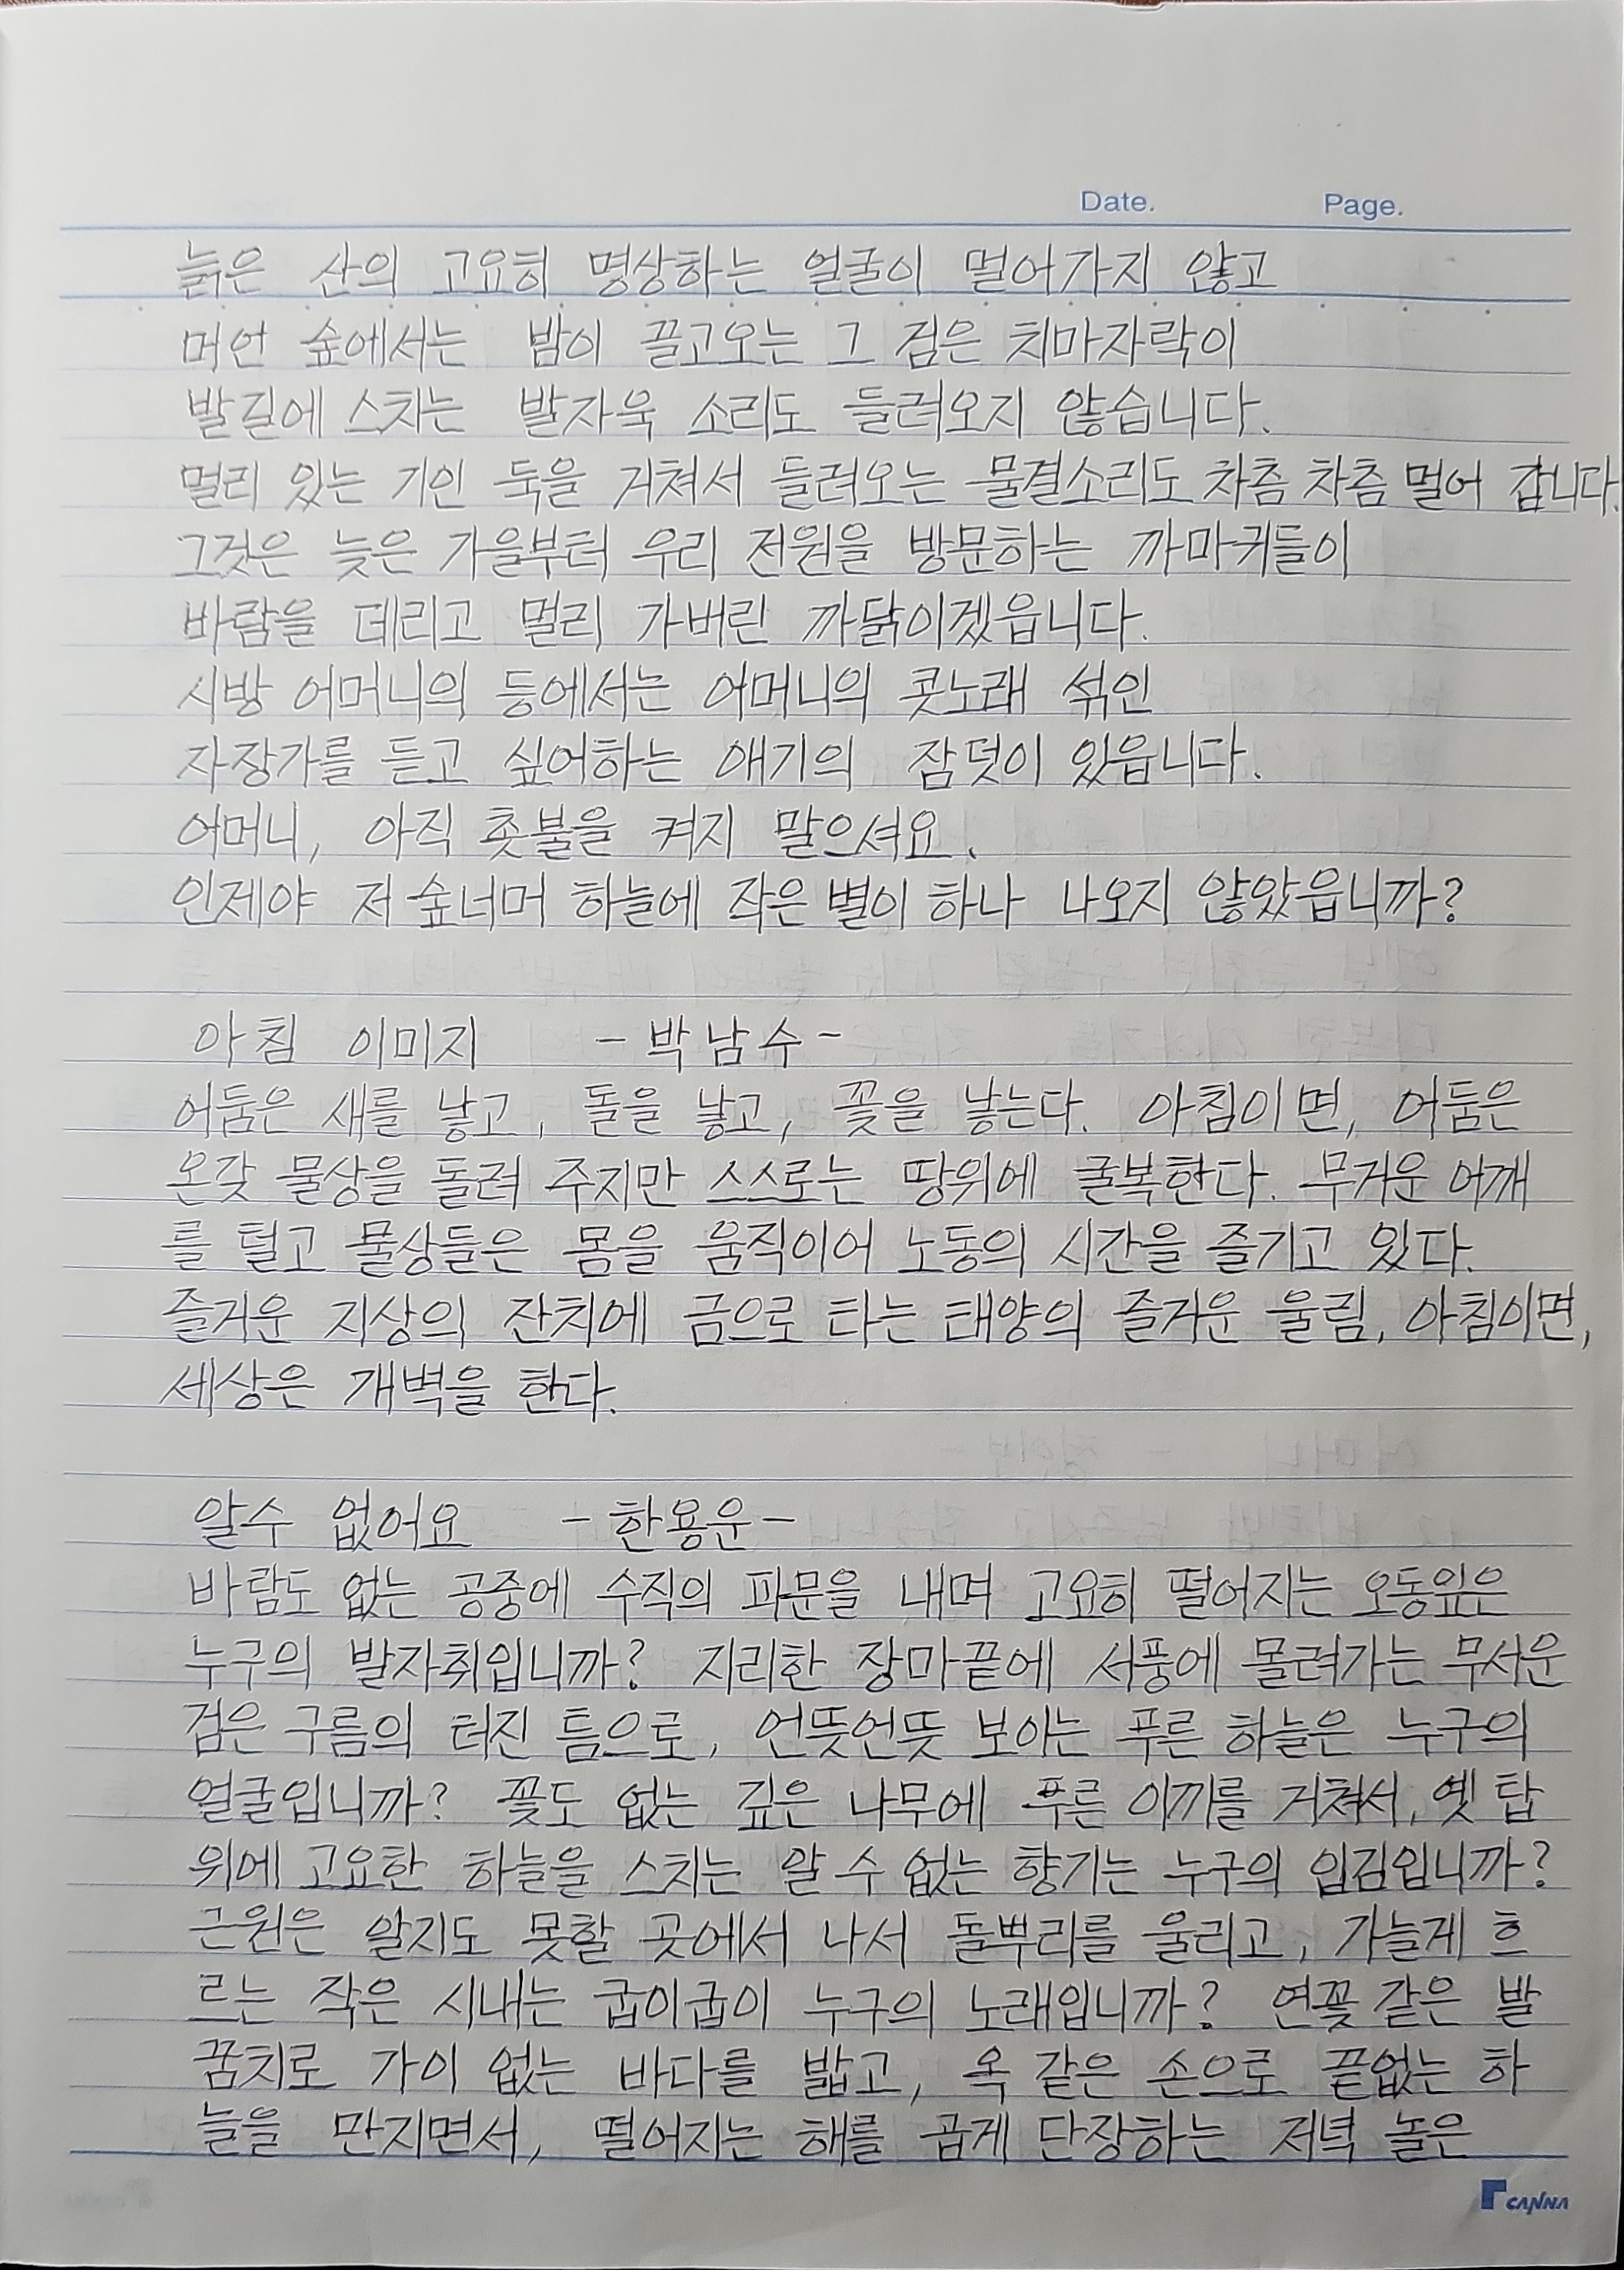 Date. Page.
늙은 산의 고요히 명상하는 얼굴이 멀어가지 않고
머언 숲에서는 밤이 끌고오는 그 검은 치마자락이
발길에 스치는 발자욱 소리도 들려오지 않습니다.
멀리 있는 기인 둑을 거쳐서 들려오는 물결소리도 차츰 차츰 멀어 갑니다.
그것은 늦은 가을부터 우리 전원을 방문하는 까마귀들이
바람을 데리고 멀리 가버린 까닭이겠읍니다.
시방 어머니의 등에서는 어머니의 콧노래 섞인
자장가를 듣고 싶어하는 애기의 잠덧이 있읍니다.
어머니, 아직 촛불을 켜지 말으셔요.
인제야 저 숲너머 하늘에 작은 별이 하나 나오지 않았읍니까?
아침 이미지 -박남수-
어둠은 새를 낳고, 돌을 낳고, 꽃을 낳는다. 아침이면, 어둠은
온갖 물상을 돌려 주지만 스스로는 땅위에 굴복한다. 무거운 어깨
를 털고 물상들은 몸을 움직이어 노동의 시간을 즐기고 있다.
즐거운 지상의 잔치에 금으로 타는 태양의 즐거운 울림, 아침이면,
세상은 개벽을 한다.
알수 없어요 -한용운-
바람도 없는 공중에 수직의 파문을 내며 고요히 떨어지는 오동잎은
누구의 발자취입니까? 지리한 장마끝에 서풍에 몰려가는 무서운
검은 구름의 터진 틈으로, 언뜻언뜻 보이는 푸른 하늘은 누구의
얼굴입니까? 꽃도 없는 깊은 나무에 푸른 이끼를 거쳐서, 옛 탑
위에 고요한 하늘을 스치는 알 수 없는 향기는 누구의 입김입니까?
근원은 알지도 못할 곳에서 나서 돌뿌리를 울리고, 가늘게 흐
르는 작은 시내는 굽이굽이 누구의 노래입니까? 연꽃 같은 발
꿈치로 가이 없는 바다를 밟고, 옥 같은 손으로 끝없는 하
늘을 만지면서, 떨어지는 해를 곱게 단장하는 저녁 놀은
CANNA